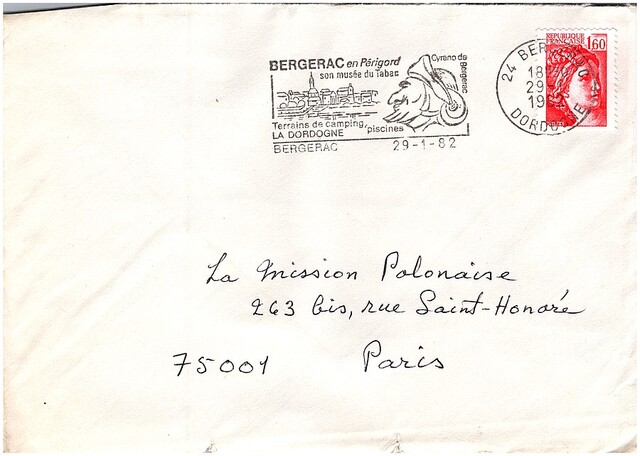 BERGERAC en Périgord
son musée du Tabac
Cyrano de Bergerac
Terrains de camping, piscines
LA DORDOGNE
BERGERAC 29-1-82
RÉPUBLIQUE FRANÇAISE 1,60
24 BERGERAC
18
29
19
DORDOGNE
La Mission Polonaise
263 bis, rue Saint-Honoré
75001 Paris